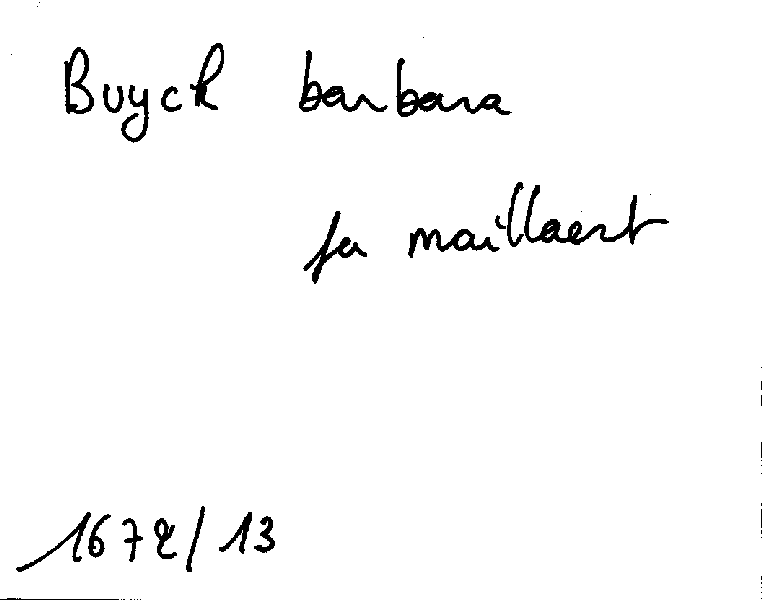 Buyck barbara
fa maillaert
1672/13